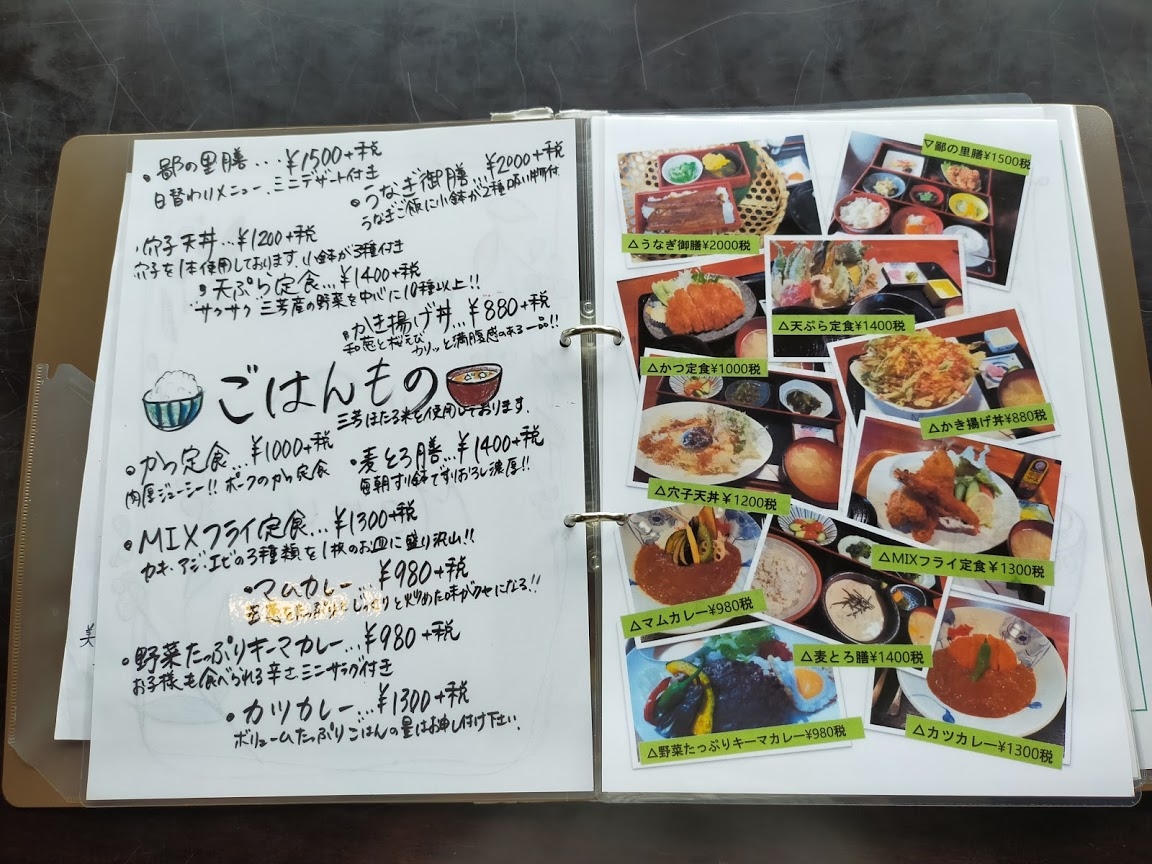 ・鄙の里膳...¥1500+税
日替わりメニュー、ミニデザート付き
・うなぎ御膳...¥2000+税
うなぎご飯に小鉢が2種
・穴子天丼...¥1200+税
穴子を1本使用しております。小鉢が3種付き
・天ぷら定食...¥1400+税
サクサク 三芳産の野菜を中心に10種以上!!
・かき揚げ丼...¥880+税
カリッと満腹感のある一品!!
ごはんもの
三芳ほたる米を使用しております。
・かつ定食...¥1000+税
肉厚ジューシー!! ポークのかつ定食
・麦とろ膳...¥1400+税
毎朝すり鉢ですりおろし濃厚!!
・MIXフライ定食...¥1300+税
カキ・アジ・エビの3種類を1枚のお皿に盛り沢山!!
・マムカレー...¥980+税
と炒めた味がクセになる!!
・野菜たっぷりキーマカレー...¥980+税
お子様も食べられる辛さ、ミニサラダ付き
・カツカレー...¥1300+税
ボリュームたっぷりごはんの量はお申し付け下さい。
美
▽鄙の里膳¥1500税
△うなぎ御膳¥2000税
△天ぷら定食¥1400税
△かつ定食¥1000税
△かき揚げ丼¥880税
△穴子天丼¥1200税
△MIXフライ定食¥1300税
△マムカレー¥980税
△麦とろ膳¥1400税
△野菜たっぷりキーマカレー¥980税
△カツカレー¥1300税